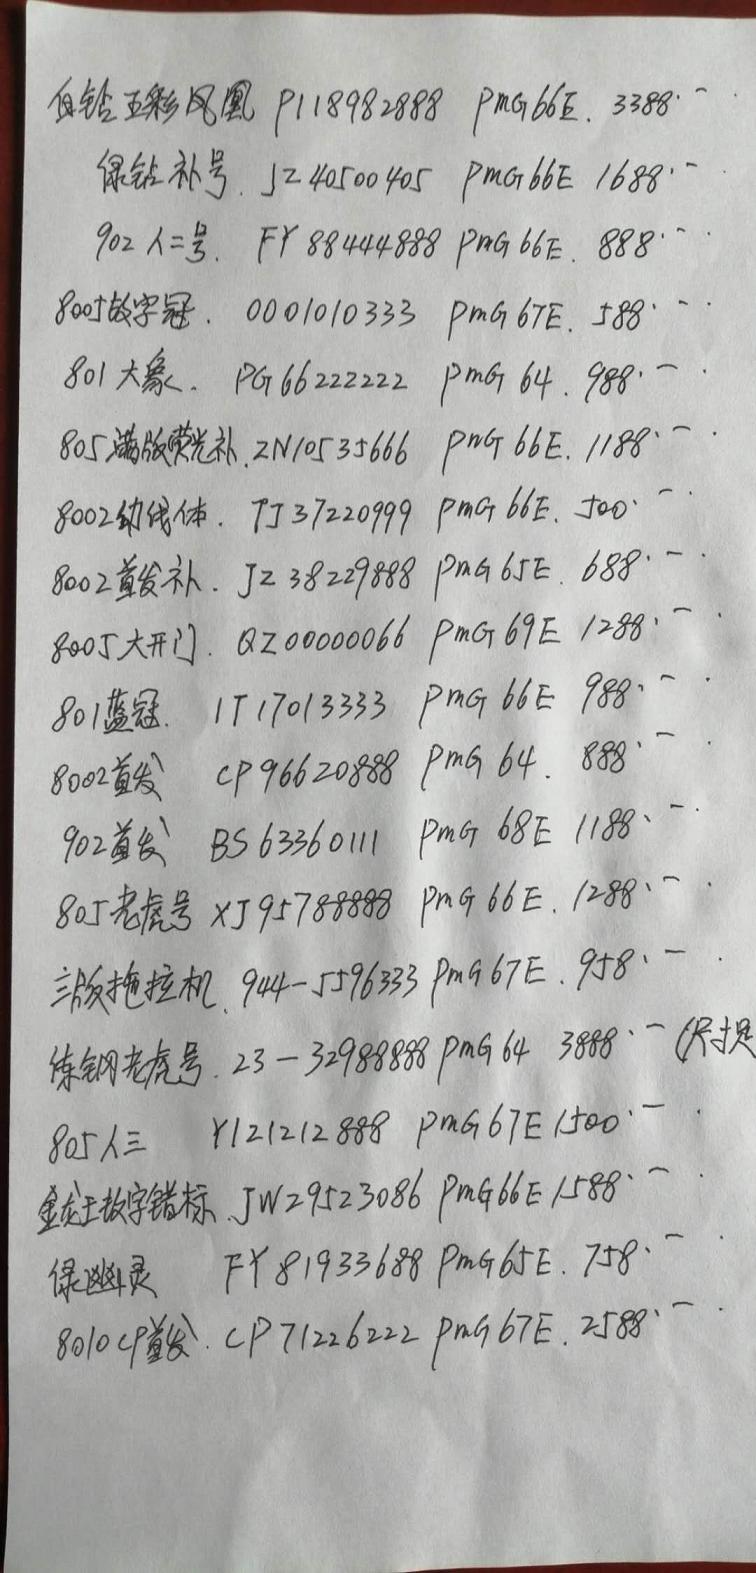 白钻五彩凤凰 P118982888 PMG66E. 3388.-
绿钻补号. JZ40500405 PMG66E 1688.-
902人二号. FY88444888 PMG66E. 888.-
8005数字冠. 0001010333 PMG67E. 588.-
801大象. PG66222222 PMG 64. 988.-
805满版荧光补. ZN10535666 PMG 66E. 1188.-
8002幼线体. TJ37220999 PMG 66E. 500.-
8002首发补. JZ38229888 PMG65E. 688.-
8005大开门. QZ00000066 PMG 69E 1288.-
801蓝冠. IT17013333 PMG 66E 988.-
8002首发 CP96620888 PMG 64. 888.-
902首发 BS63360111 PMG 68E 1188.-
805老虎号 XJ95788888 PMG 66E. 1288.-
三版拖拉机. 944-5596333 PMG67E. 958.-
炼钢老虎号. 23-32988888 PMG 64 3888.-
805人三 Y121212888 PMG67E 1500.-
金龙王数字错标. JW29523086 PMG66E 1588.-
绿幽灵 FY81933688 PMG65E. 758.-
8010CP首发. CP71226222 PMG67E. 2588.-